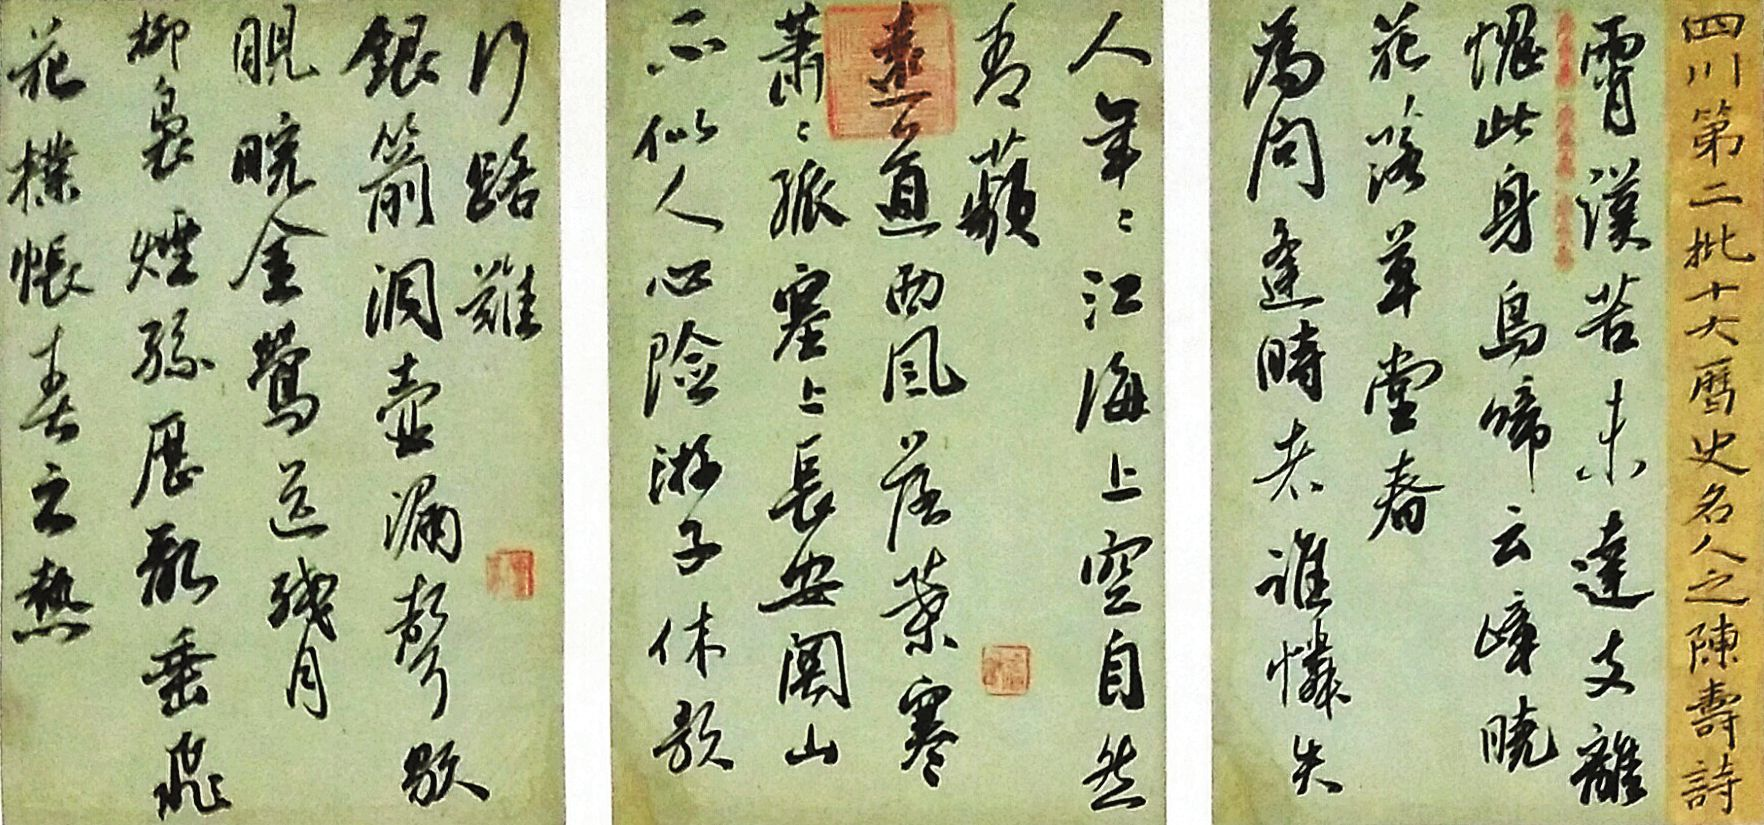 四川第二批十大曆史名人之陳壽詩
霄漢苦未達支離
愧此身鳥啼云嶂曉
花落草堂春
為問逢時者誰憐失
人年〻江海上空自然
青蘋
遠道西風落葉寒
蕭〻孤塞上長安関山
不似人心險游子休歌
行路難
銀箭洞壺漏聲歇
睍睆金鶯送殘月
柳裊煙絲歷亂垂飛
花撲帳春之熱